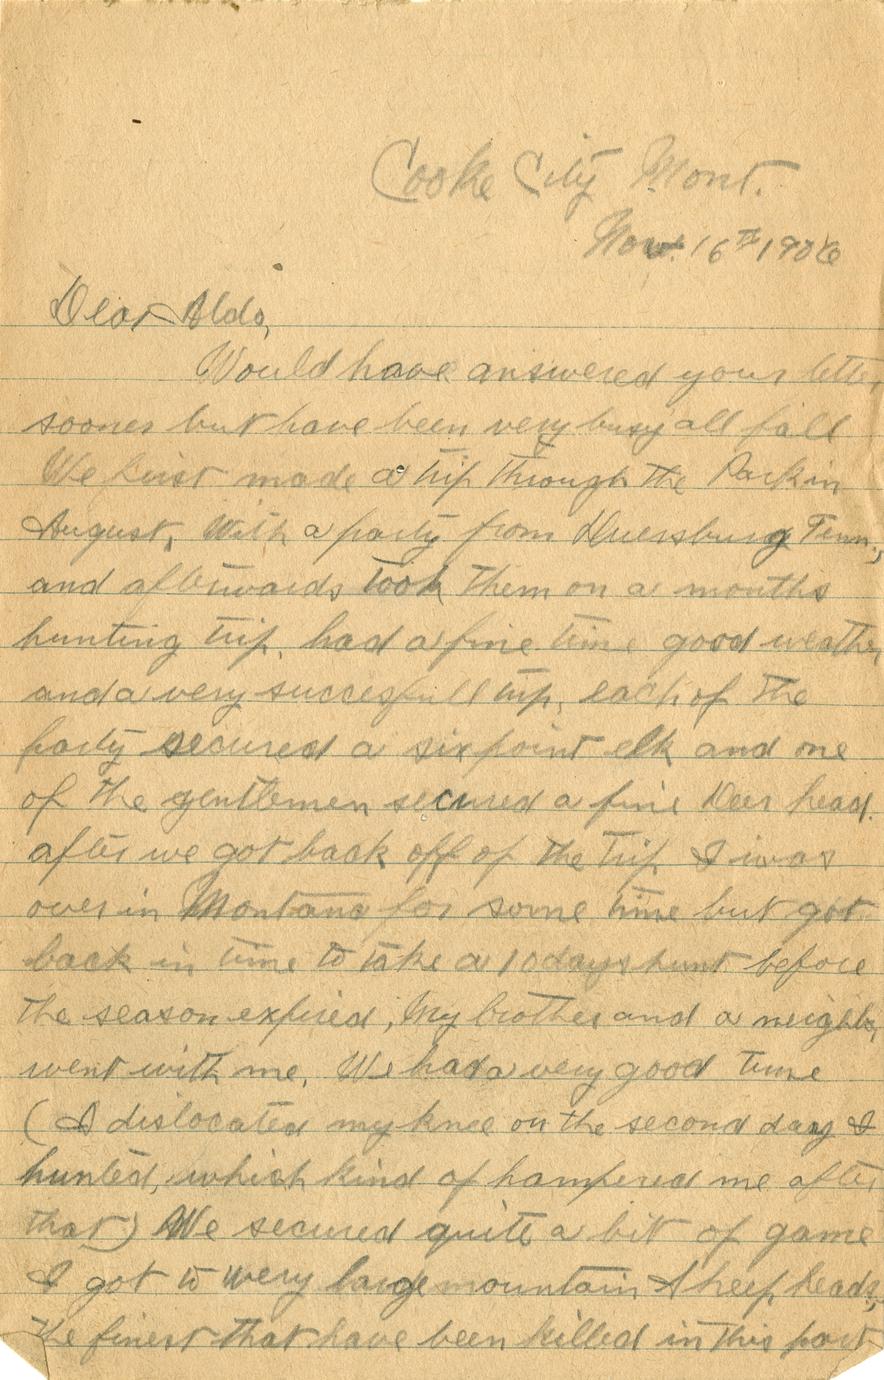 Cooke City Mont.
Nov. 16th 1906
Dear Aldo,
Would have answered your letter
sooner but have been very busy all fall
We first made a trip through the Park in
August, With a party from Duersburg Tenn.,
and afterwards took them on a months
hunting trip, had a fine time good weather,
and a very succesfull trip, each of the
party secured a six point elk and one
of the gentlemen secured a fine Deer head.
after we got back off of the trip I was
over in Montana for some time but got
back in time to take a 10 days hunt before
the season expired, My brother and a neighbor
went with me. We had a very good time
( I dislocated my knee on the second day I
hunted, which kind of hampered me after
that) We secured quite a bit of game
I got to wery large mountain Sheep heads,
the finest that have been killed in this part